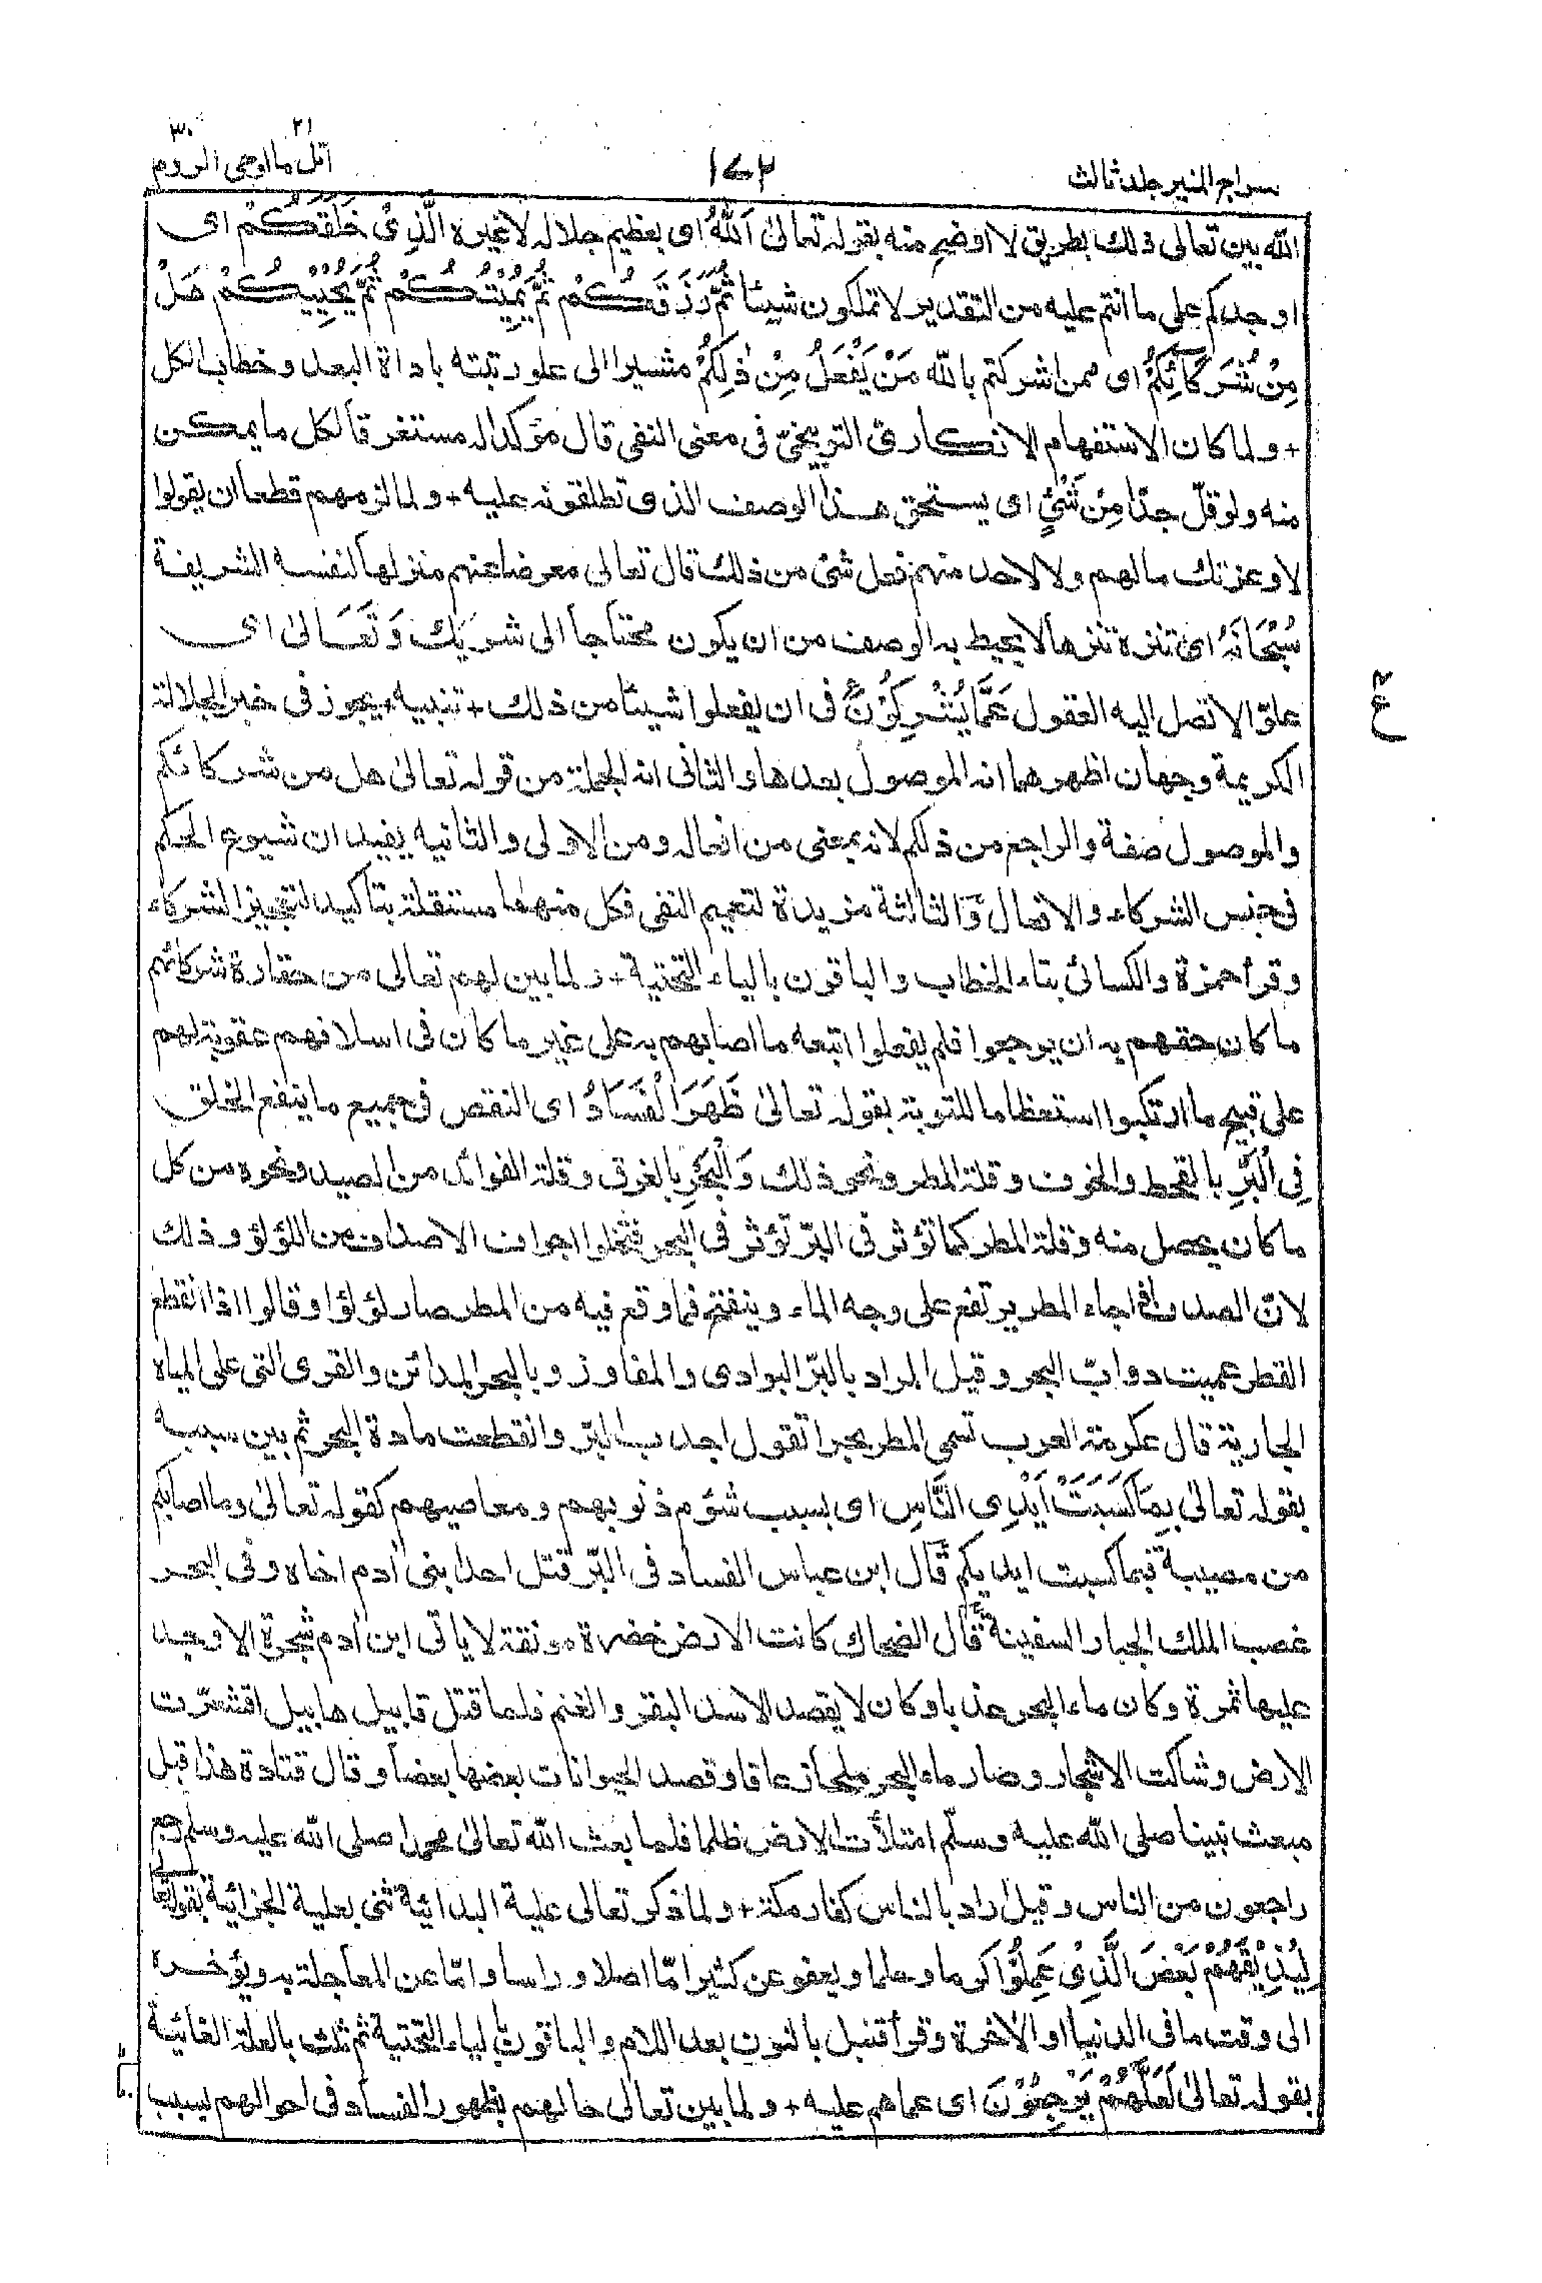 سراج المنير جلد ثالث
١٧٢
٢١ ٣٠
اتل ما اوحی الروم
الله بين تعالى ذلك بطريق لا اوضح منه بقوله تعالىٰ اَللّٰهُ اى بعظيم جلاله لا غيره الَّذِىْ خَلَقَكُمْ اى
اوجدكم على ما انتم عليه من التقدير لا تملكون شيئا ثُمَّ رَزَقَكُمْ ثُمَّ يُمِيْتُكُمْ ثُمَّ يُحْيِيْكُمْ هَلْ
مِنْ شُرَكَآئِكُمْ اى ممن اشركتم بالله مَنْ يَفْعَلُ مِنْ ذٰلِكُمْ مشيرا الى علو رتبته باداة البعد وخطاب الكل
+ ولما كان الاستفهام الانكارى التوبيخىّ فى معنى النفى قال مؤكدا له مستغرقا لكل ما يمكن
منه ولو قلّ جدّا مِنْ شَىْءٍ اى يستحق هذا الوصف الذى تطلقونه عليه + ولما لزمهم قطعا ان يقولوا
لا وعزتك مالهم ولا لاحد منهم فعل شئ من ذلك قال تعالى معرضا عنهم منزلها لنفسه الشريفة
سُبْحَانَهٗ اى تنزه تنزها لا يحيط به الوصف من ان يكون محتاجا الى شريك وَتَعَالىٰ اى
علوّا لا تصل اليه العقول عَمَّا يُشْرِكُوْنَ فى ان يفعلوا شيئا من ذلك + تنبيه + يجوز فى خبر الجلالة
الكريمة وجهان اظهرهما انه الموصول بعدها والثانى انه الجملة من قوله تعالىٰ هل من شركائكم
والموصول صفة والراجع من ذلكم لانه بمعنى من افعاله ومن الاولى والثانيه يفيد ان شيوع الحكم
فى جنس الشركاء والافعال وَالثالثة مزيدة لتعميم النفى فكل منهما مستقلة بتأكيد لتعجيز الشركاء
وقرأ حمزة والكسائى بتاء الخطاب والباقون بالياء التحتية + ولما بين لهم تعالى من حقارة شركائهم
ما كان حقهم به ان يرجعوا فلم يفعلوا اتبعه ما اصابهم به على غير ما كان فى اسلافهم عقوبة لهم
على قبيح ما ارتكبوا استعظاما للتوبة بقوله تعالىٰ ظَهَرَ الْفَسَادُ اى النقص فى جميع ما ينفع الخلق
فِى الْبَرِّ بالقحط والخوف وقلة المطر ونحو ذلك وَالْبَحْرِ بالغرق وقلة الفوائد من الصيد ونحوه من كل
ما كان يحصل منه وقلة المطر كما تؤثر فى البرّ تؤثر فى البحر فتخلوا اجواف الاصداف من اللؤلؤ وذلك
لانّ الصدف اذا جاء المطر يرتفع على وجه الماء وينفتح فما وقع فيه من المطر صار لؤلؤا وقالوا اذا انقطع
القطر عميت دوابّ البحر وقيل المراد بالبرّ البوادى والمفاوز وبالبحر المدائن والقرى التى على المياه
الجارية قال عكرمة العرب تسمى المطر بحرا تقول اجدب البرّ وانقطعت مادة البحر ثم بين سببه
بقوله تعالىٰ بِمَا كَسَبَتْ اَيْدِى النَّاسِ اى بسبب شؤم ذنوبهم ومعاصيهم كقوله تعالىٰ وما اصابكم
من مصيبة فبما كسبت ايديكم قَالَ ابن عباس الفساد فى البرّ قتل احد ابنى اٰدم اخاه وفى البحر
غصب الملك الجبار السفينة قَالَ الضحاك كانت الارض خضرة مونقة لا ياتى ابن اٰدم شجرة الا وجد
عليها ثمرة وكان ماء البحر عذبا وكان لا يقصد الاسد البقر والغنم فلما قتل قابيل هابيل اقشعرّت
الارض وشاكت الاشجار وصار ماء البحر ملحا زعاقا وقصد الحيوانات بعضها بعضا وَقال قتادة هذا قبل
مبعث نبينا صلى الله عليه وسلّم امتلأت الارض ظلما فلما بعث الله تعالىٰ محمدا صلى الله عليه وسلم رجع
راجعون من الناس وقيل اراد بالناس كفار مكة + ولما ذكر تعالى علية البدائية ثنى بعلية الجزائية بقوله تعالى
لِيُذِيْقَهُمْ بَعْضَ الَّذِىْ عَمِلُوْا كرما وحلما ويعفو عن كثير امّا اصلا وراسا وامّا عن المعاجلة به ويؤخره
الى وقت ما فى الدنيا او الاٰخرة وقرأ قنبل بالنون بعد اللام والباقون بالياء التحتية ثم ثلث بالعلة الغائية
بقوله تعالىٰ لَعَلَّهُمْ يَرْجِعُوْنَ اى عما هم عليه + ولما بين تعالىٰ حالهم بظهور الفساد فى احوالهم بسبب